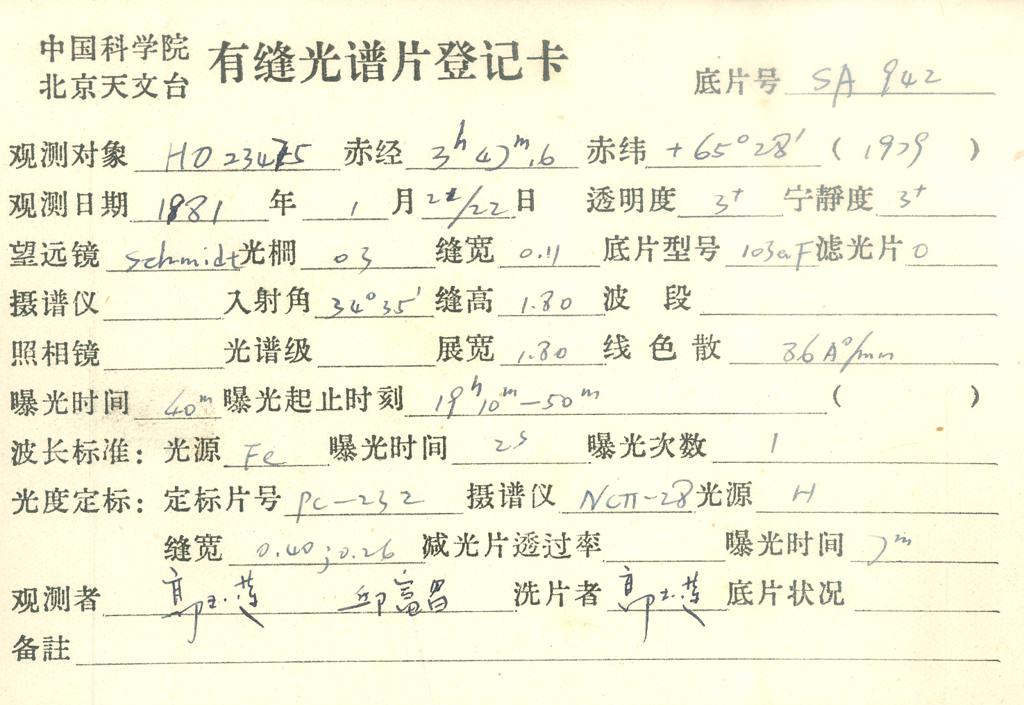 中国科学院
北京天文台 有缝光谱片登记卡 底片号 SA 942
观测对象 HD 23475 赤经 3h47m.6 赤纬 +65°28′ ( 1979 )
观测日期 1981 年 1 月 21/22 日 透明度 3+ 宁静度 3+
望远镜 Schmidt 光栅 03 缝宽 0.11 底片型号 103aF 滤光片 0
摄谱仪 入射角 34°35′ 缝高 1.80 波段
照相镜 光谱级 展宽 1.80 线色散 86A°/mm
曝光时间 40m 曝光起止时刻 19h10m-50m ( )
波长标准: 光源 Fe 曝光时间 2s 曝光次数 1
光度定标: 定标片号 PC-232 摄谱仪 ИСП-28 光源 H
缝宽 0.40;0.26 减光片透过率 曝光时间 7m
观测者 郭玉莲 邱富昌 洗片者 郭玉莲 底片状况
备註